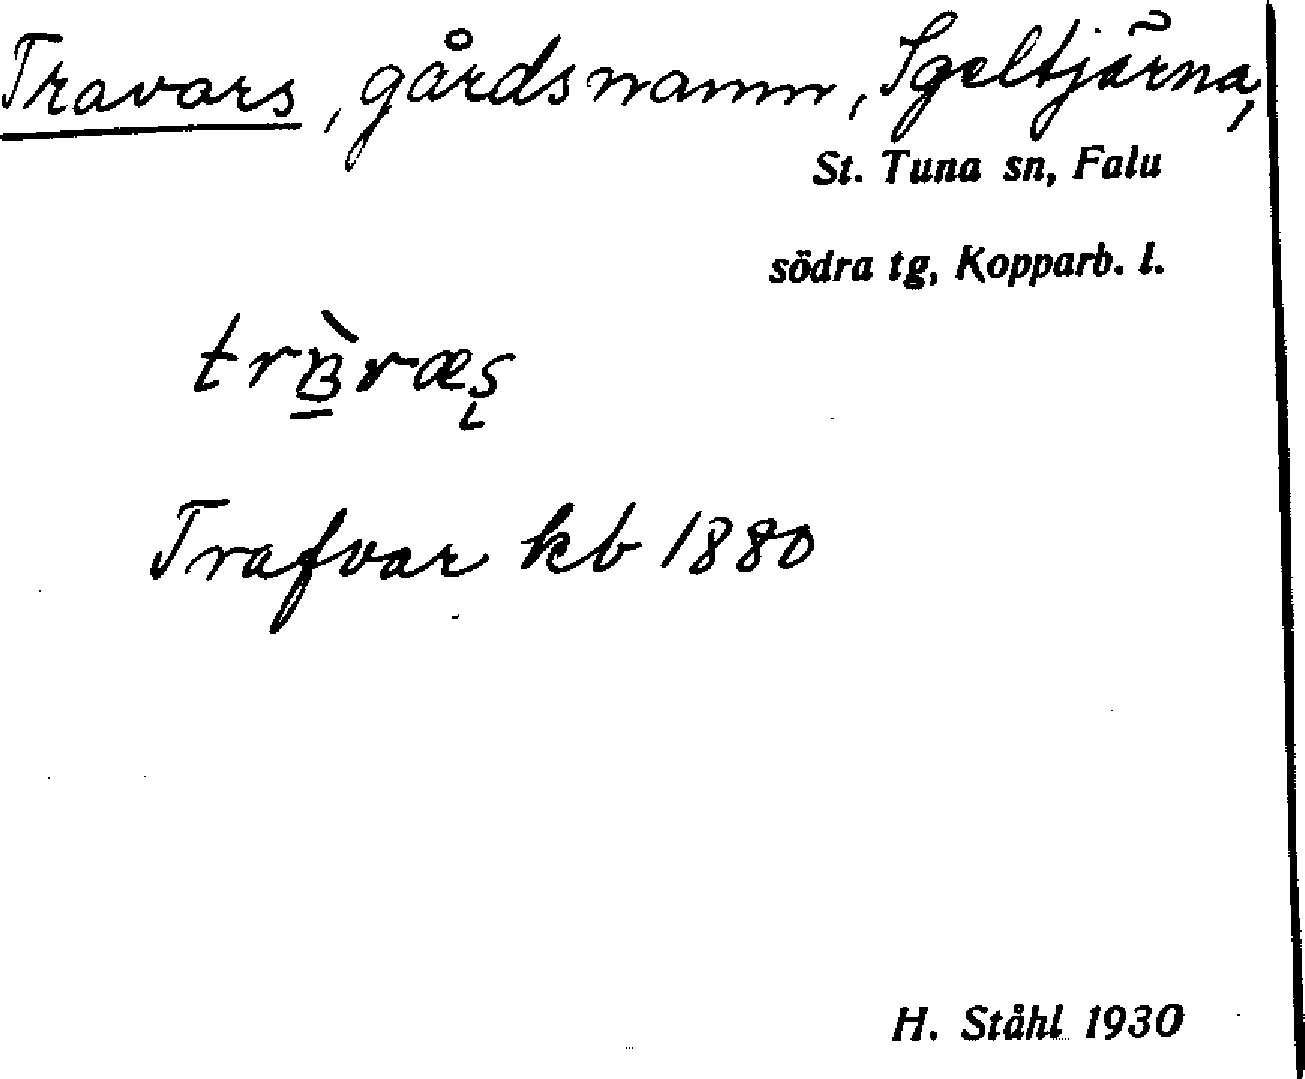 Travars, gårdsnamn, Igeltjärna,
St. Tuna sn, Falu
södra tg, Kopparb. l.
Trafvar kb 1880
H. Ståhl 1930